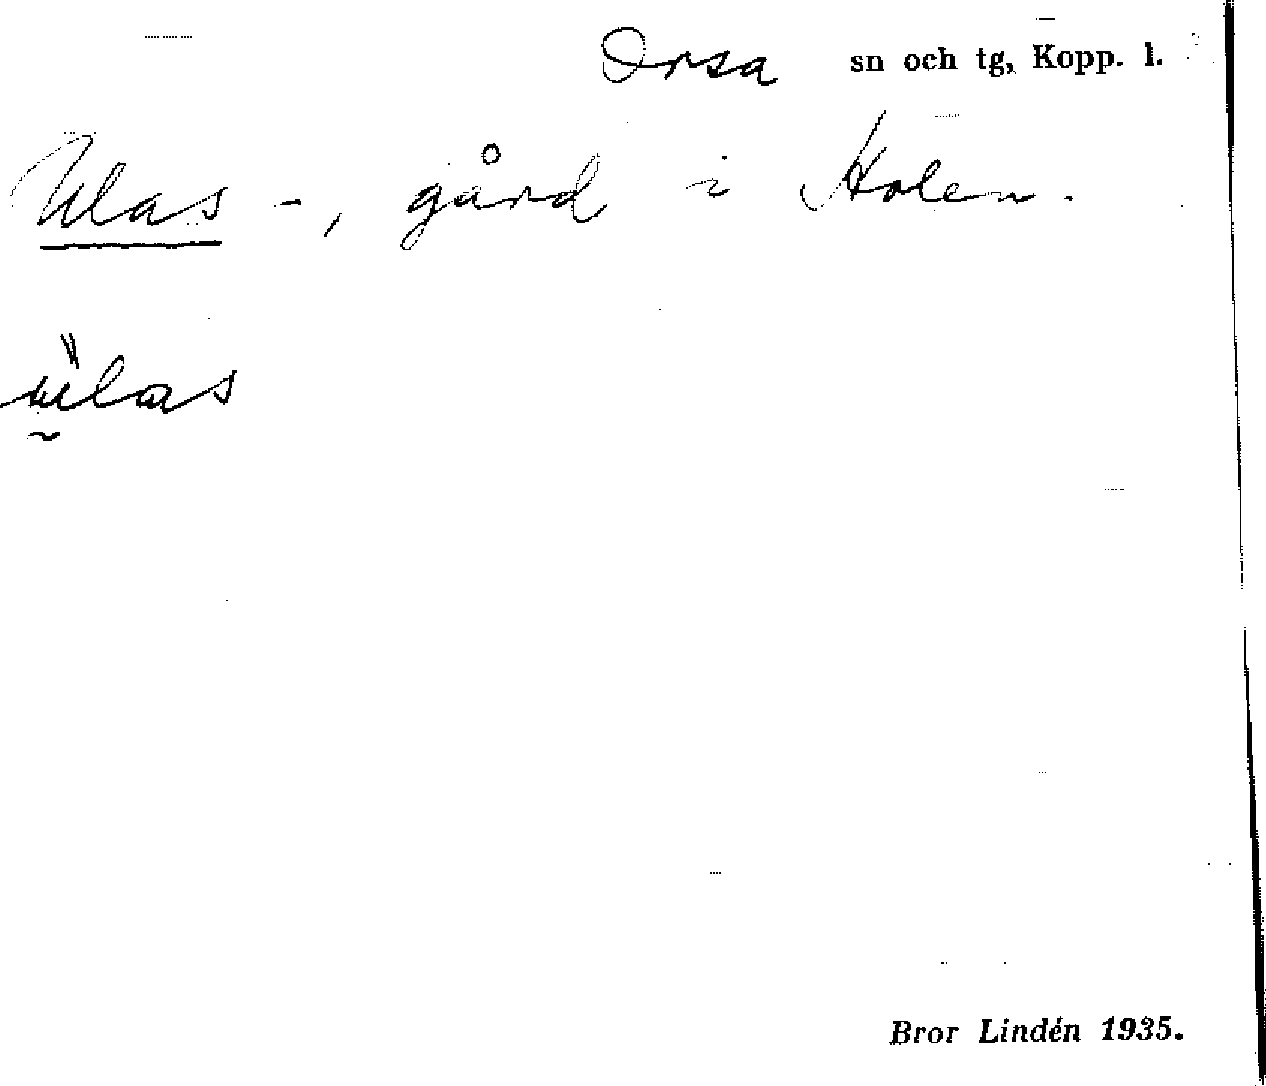 Orsa sn och tg, Kopp. l.
Ulas -, gård i Holen.
ùlas
Bror Lindén 1935.